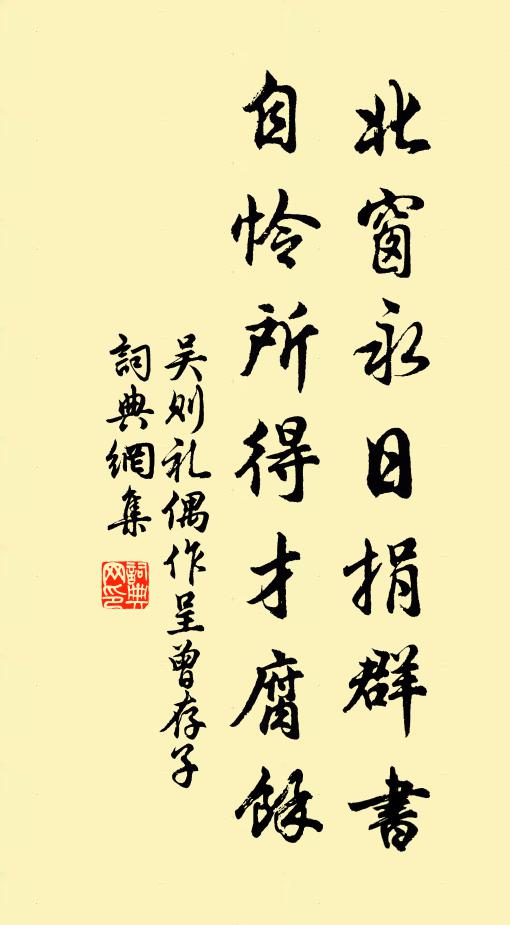 北窗永日捐群書
自怜所得才腐餘
吴则礼偶作呈曾存子
詞典網集
詞典网印